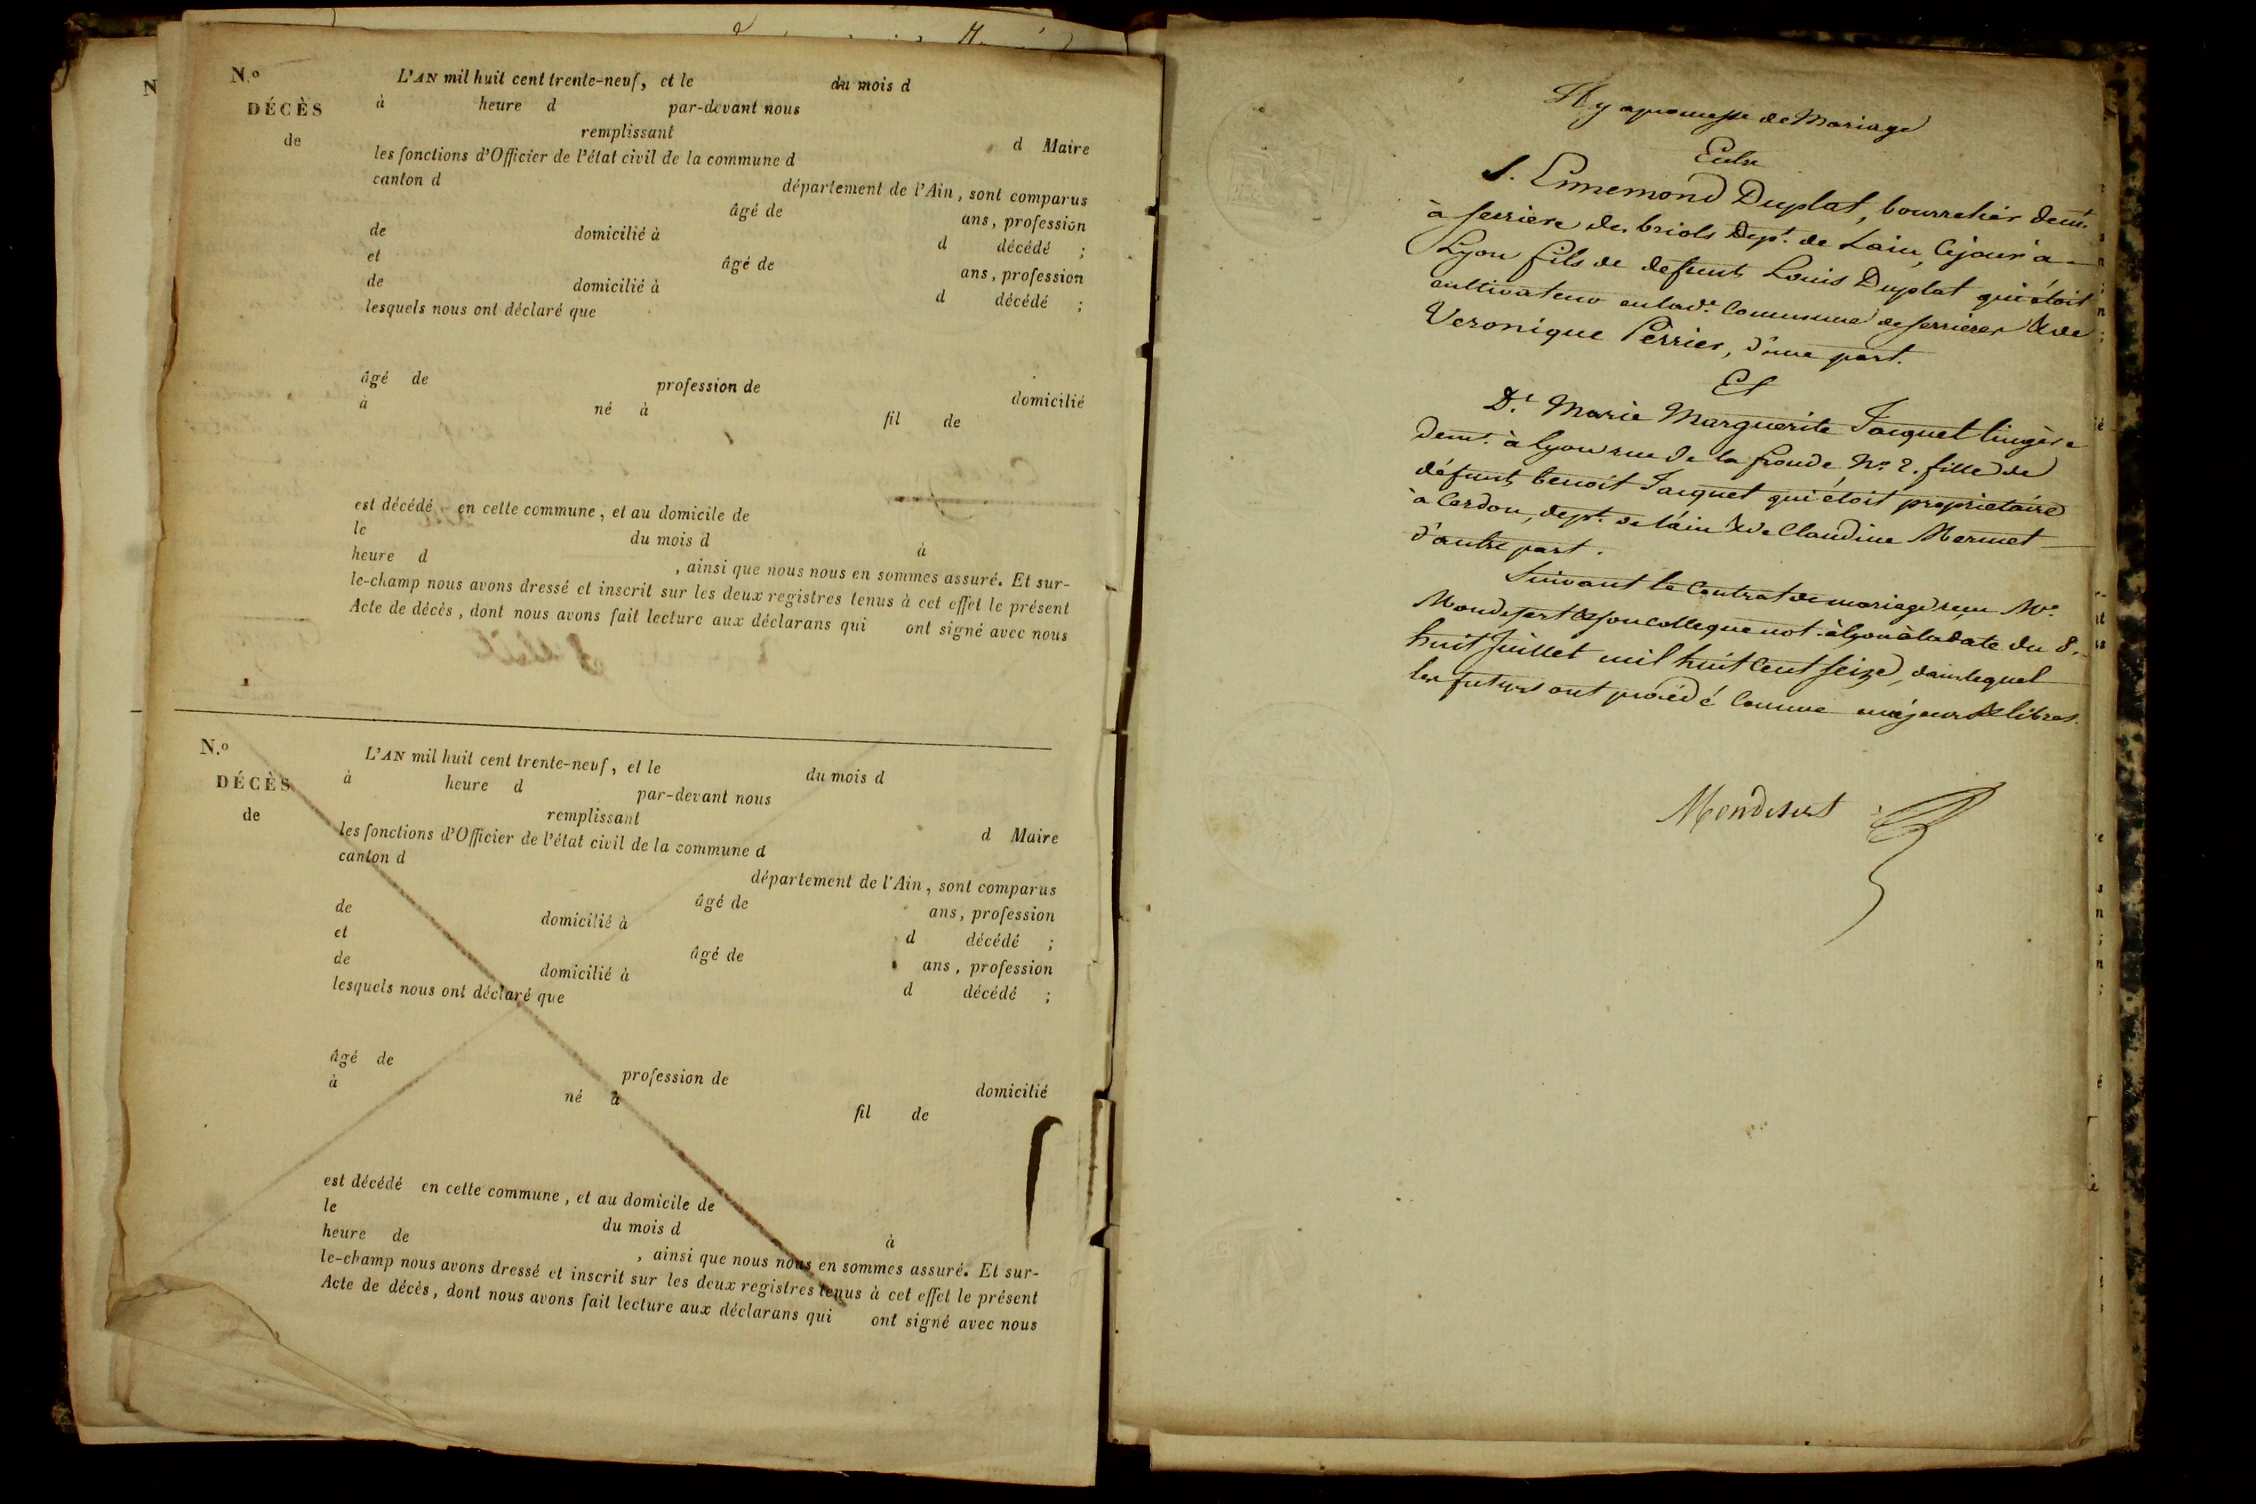 N.º
DÉCÈS
de
L'AN mil huit cent trente-neuf, et le du mois d
à heure d par-devant nous
remplissant d Maire
les fonctions d'Officier de l'état civil de la commune d
canton d département de l'Ain, sont comparus
âgé de ans, profession
de domicilié à d décédé ;
et âgé de ans, profession
de domicilié à d décédé ;
lesquels nous ont déclaré que
âgé de profession de domicilié
à né à fil de
est décédé en cette commune, et au domicile de
le du mois d à
heure d , ainsi que nous nous en sommes assuré. Et sur-
le-champ nous avons dressé et inscrit sur les deux registres tenus à cet effet le présent
Acte de décès, dont nous avons fait lecture aux déclarans qui ont signé avec nous
N.º
DÉCÈS
de
L'AN mil huit cent trente-neuf, et le du mois d
à heure d par-devant nous
remplissant d Maire
les fonctions d'Officier de l'état civil de la commune d
canton d département de l'Ain, sont comparus
âgé de ans, profession
de domicilié à d décédé ;
et âgé de ans, profession
de domicilié à d décédé ;
lesquels nous ont déclaré que
âgé de profession de domicilié
à né à fil de
est décédé en cette commune, et au domicile de
le du mois d à
heure de , ainsi que nous nous en sommes assuré. Et sur-
le-champ nous avons dressé et inscrit sur les deux registres tenus à cet effet le présent
Acte de décès, dont nous avons fait lecture aux déclarans qui ont signé avec nous
Il y a promesse de Mariage
Entre
S. Ennemond Duplat, bourrelier demt.
à serriere de briols Dept. de Lain, Cejour à
Lyon fils de defunt Louis Duplat qui étoit
cultivateur en lad.e Commune de serrieres & de
Veronique Perrier, d'une part.
Et
D.e Marie Marguerite Jacquet lingère
demt. à lyon rue de la fronde No. 2. fille de
défunt benoit Jacquet qui étoit proprietaire
à Cerdon, dept. de l'ain & de Claudine Mermet
d'autre part.
Suivant le Contrat de mariage reçu Me.
& son collegue not. à lyon à la date du
huit Juillet mil huit Cent Seize, dans lequel
les futurs ont procédé Comme majeurs & libres.